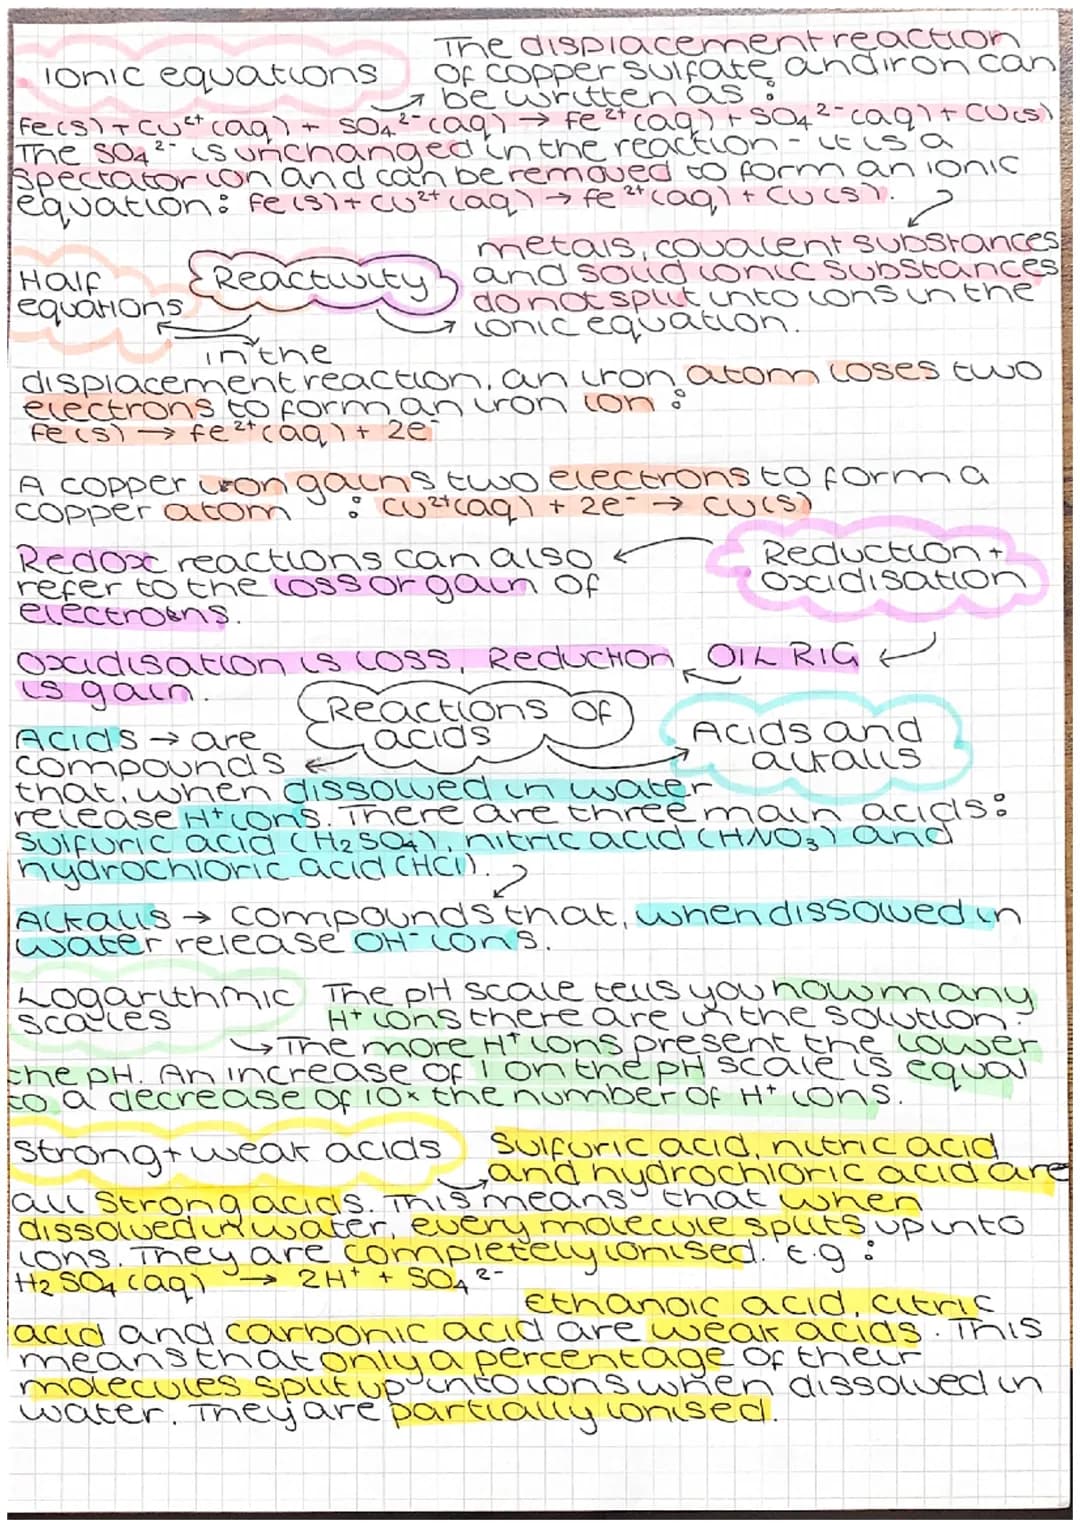 Ionic equations
The displacement reaction
of copper sulfate and iron can
be written as :
Fe(s) + Cu²⁺(aq) + SO₄²⁻(aq) → Fe²⁺(aq) + SO₄²⁻(aq) + Cu(s)
The SO₄²⁻ is unchanged in the reaction - it is a
spectator ion and can be removed to form an ionic
equation: Fe(s) + Cu²⁺(aq) → Fe²⁺(aq) + Cu(s).
metals, covalent substances
and solid ionic substances
do not split into ions in the
ionic equation.
Reactivity
Half
equations
in the
displacement reaction, an iron atom loses two
electrons to form an iron ion :
Fe(s) → Fe²⁺(aq) + 2e⁻
A copper ion gains two electrons to form a
copper atom : Cu²⁺(aq) + 2e⁻ → Cu(s)
Reduction +
oxidisation
Redox reactions can also
refer to the loss or gain of
electrons.
Oxidisation is loss, Reduction OIL RIG
is gain.
Reactions of
acids
Acids and
alkalis
Acids → are
compounds
that, when dissolved in water
release H⁺ ions. There are three main acids:
sulfuric acid (H₂SO₄), nitric acid (HNO₃) and
hydrochloric acid (HCl).
Alkalis → compounds that, when dissolved in
water release OH⁻ ions.
Logarithmic
scales
The pH scale tells you how many
H⁺ ions there are in the solution.
→ The more H⁺ ions present the lower
the pH. An increase of 1 on the pH scale is equal
to a decrease of 10x the number of H⁺ ions.
Strong + weak acids
Sulfuric acid, nitric acid
and hydrochloric acid are
all strong acids. This means that when
dissolved in water, every molecule splits up into
ions. They are completely ionised. E.g :
H₂SO₄(aq) → 2H⁺ + SO₄²⁻
Ethanoic acid, citric
acid and carbonic acid are weak acids. This
means that only a percentage of their
molecules split up into ions when dissolved in
water. They are partially ionised.